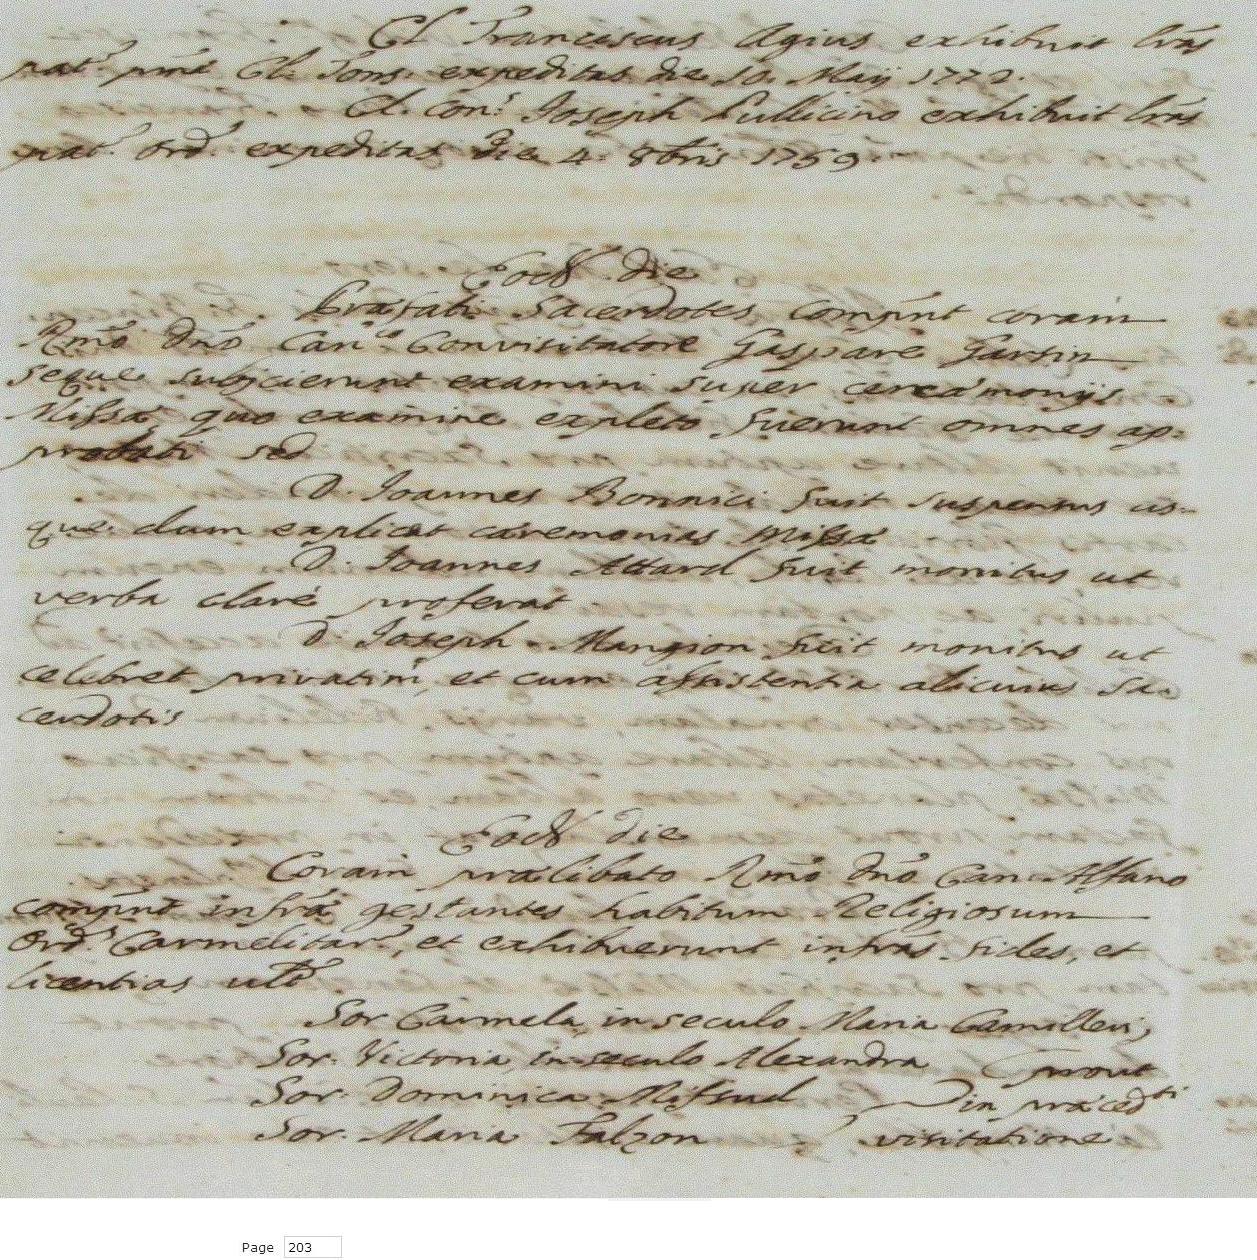 Cl. Franciscus Agius exhibuit lrãs
pat. pmē Cl. Tons. expeditas die 10. Maij 1772.
Cl. con. Joseph Pullicino exhibuit lrãs
pat. Ord. expeditas die 4. 8bris 1759.
Eod. die
Præfati Sacerdotes compnt coram
Rmõ Dnõ Can.co Convisitatore Gaspare Garsin
seque subjicierunt examini super cæremonijs
Missæ quo examine expleto fuerunt omnes ap-
probati sed
D. Joannes Bonnici fuit suspensus us-
que dum explicet cæremonias Missæ
D. Joannes Attard fuit monitus ut
verba clarè proferat
D. Joseph Mangion fuit monitus ut
celebret privatim, et cum assistentia alicuius Sa-
cerdotis
Eod. die
Coram prælibato Rmõ Dnõ Can.
compnt infra gestantes habitum Religiosum
Ord.s Carmelitar., et exhibuerunt infras fides, et
licentias ultõ
Sor Carmela, in seculo Maria Camilleri,
Sor. Victoria, in seculo Alexandra prout
Sor. Dominica Mifsud in præcedti
Sor. Maria Falzon visitatione
Page 203